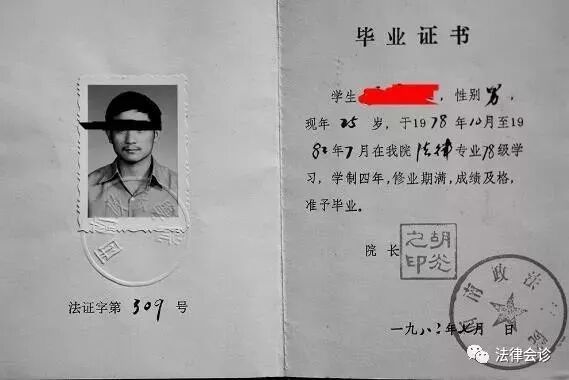 法证字第 309 号
毕业证书
学生 ，性别 男，
现年 25 岁，于1978年10月至19
82年7月在我院 法律 专业78级学
习，学制四年，修业期满，成绩及格，
准予毕业。
院长
胡光之印
一九八二年七月 日
政法
法律会诊